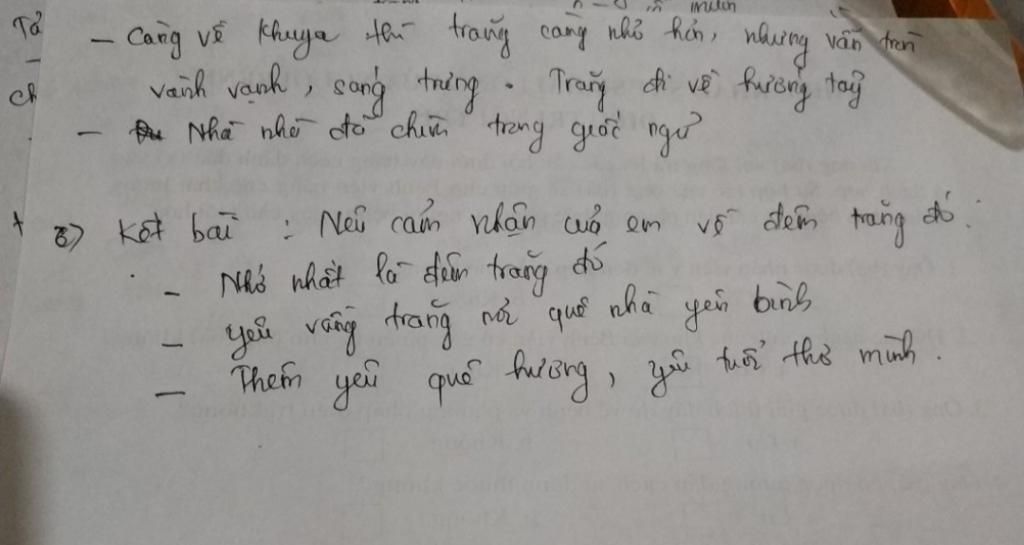 muôn
Tả
- Càng về khuya thì trăng càng nhỏ hơn, nhưng vẫn tròn
vành vạnh, sáng trưng. Trăng đi về hướng tây
- Nhà nhà đã chìm trong giấc ngủ
3) Kết bài : Nêu cảm nhận của em về đêm trăng đó.
- Nhớ nhất là đêm trăng đó
- yêu vầng trăng nơi quê nhà yên bình
- Thêm yêu quê hương, yêu tuổi thơ mình.